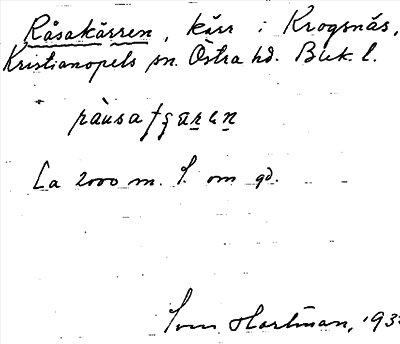 Råsakärren, kärr i Krogsnäs,
Kristianopels sn. Östra hd. Blek. l.
Ca 2000 m. S. om gd.
Sven Hartman, 193